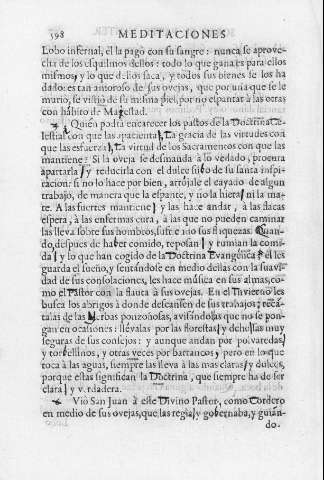 598 MEDITACIONES
Lobo infernal, él la pagò con su sangre: nunca se aprove-
cha de los esquilmos dellos: todo lo que gana es para ellos
mismos, y lo que dellos saca, y todos sus bienes se los ha
dado: es tan amoroso de sus ovejas, que por una que se le
muriò, se vistiò de su misma piel, por no espantar à las otras
con hábito de Magestad.
Quien podrá encarecer los pastos de la Doctrina Ce-
lestial con que las apacienta? La gracia de las virtudes con
que las esfuerza? La virtud de los Sacramentos con que las
mantiene? Si la oveja se desmanda à lo vedado, procura
apartarla, y reducirla con el dulce silvo de su santa inspi-
racion: si no lo hace por bien, arrójale el cayado de algun
trabajo, de manera que la espante, y no la hiera, ni la ma-
te. A las fuertes mantiene, y las hace andar, à las flacas
espera, à las enfermas cura, à las que no pueden caminar
las lleva sobre sus hombros, sufriendo sus flaquezas. Quan-
do, despues de haber comido, reposan, y rumian la comi-
da, y lo que han cogido de la Doctrina Evangélica, él les
guarda el sueño, y sentándose en medio dellas con la suavi-
dad de sus consolaciones, les hace música en sus almas, co-
mo el Pastor con la flauta à sus ovejas. En el Invierno les
busca los abrigos à donde descansen de sus trabajos; recá-
talas de las yerbas ponzoñosas, avisándolas que no se pon-
gan en ocasiones: llévalas por las florestas, y dehesas muy
seguras de sus consejos: y aunque andan por polvaredas,
y torbellinos, y otras veces por barrancos, pero en lo que
toca à las aguas, siempre las lleva à las mas claras, y dulces,
porque estas significan la Doctrina, que siempre ha de ser
clara, y verdadera.
Viò San Juan à este Divino Pastor, como Cordero
en medio de sus ovejas, que las regía, y gobernaba, y guián-
do-